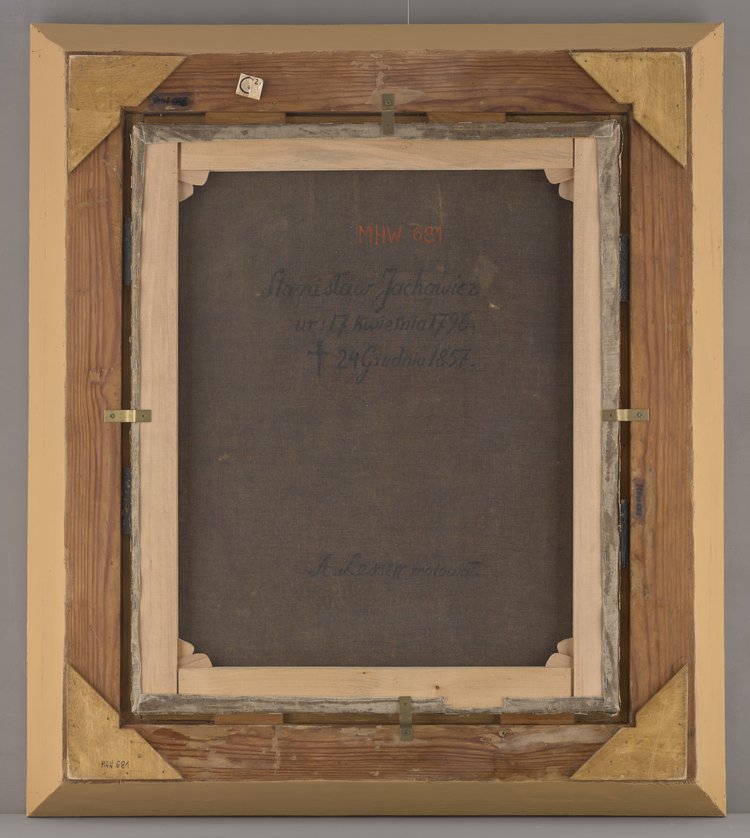 C 2.
MHW 681
Stanisław Jachowicz
ur: 17 kwietnia 1796.
† 24 Grudnia 1857.
A. Lesser malował.
MHW 681